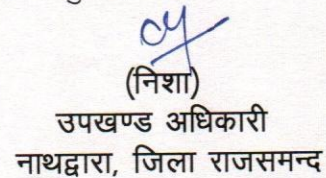 (निशा)
उपखण्ड अधिकारी
नाथद्वारा, जिला राजसमन्द